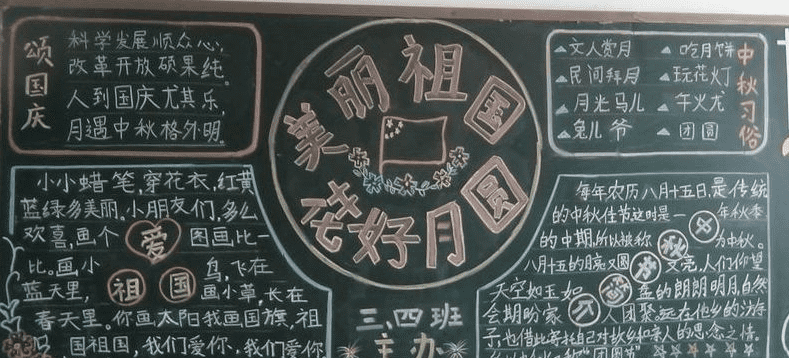 颂国庆
科学发展顺众心，
改革开放硕果纯。
人到国庆尤其乐，
月遇中秋格外明。
美丽祖国
花好月圆
中秋习俗
文人赏月
吃月饼
民间拜月
玩花灯
月光马儿
午火龙
兔儿爷
团圆
小小蜡笔，穿花衣，红黄
蓝绿多美丽。小朋友们，多么
欢喜，画个 图画比一
比。画小 鸟，飞在
蓝天里， 画小草，长在
春天里。你画太阳我画国旗，祖
国祖国，我们爱你，我们爱你
爱
祖国
三、四班
主办
每年农历八月十五日是传统
的中秋佳节这时是一 年秋季
的中期，所以被称 为中秋。
八月十五的月亮又圆 又亮，人们仰望
天空如玉如 盘的朗朗明月，自然
会期盼家 人团聚，远在他乡的游
子，也借此寄托自己对故乡和亲人的思念之情。
中秋